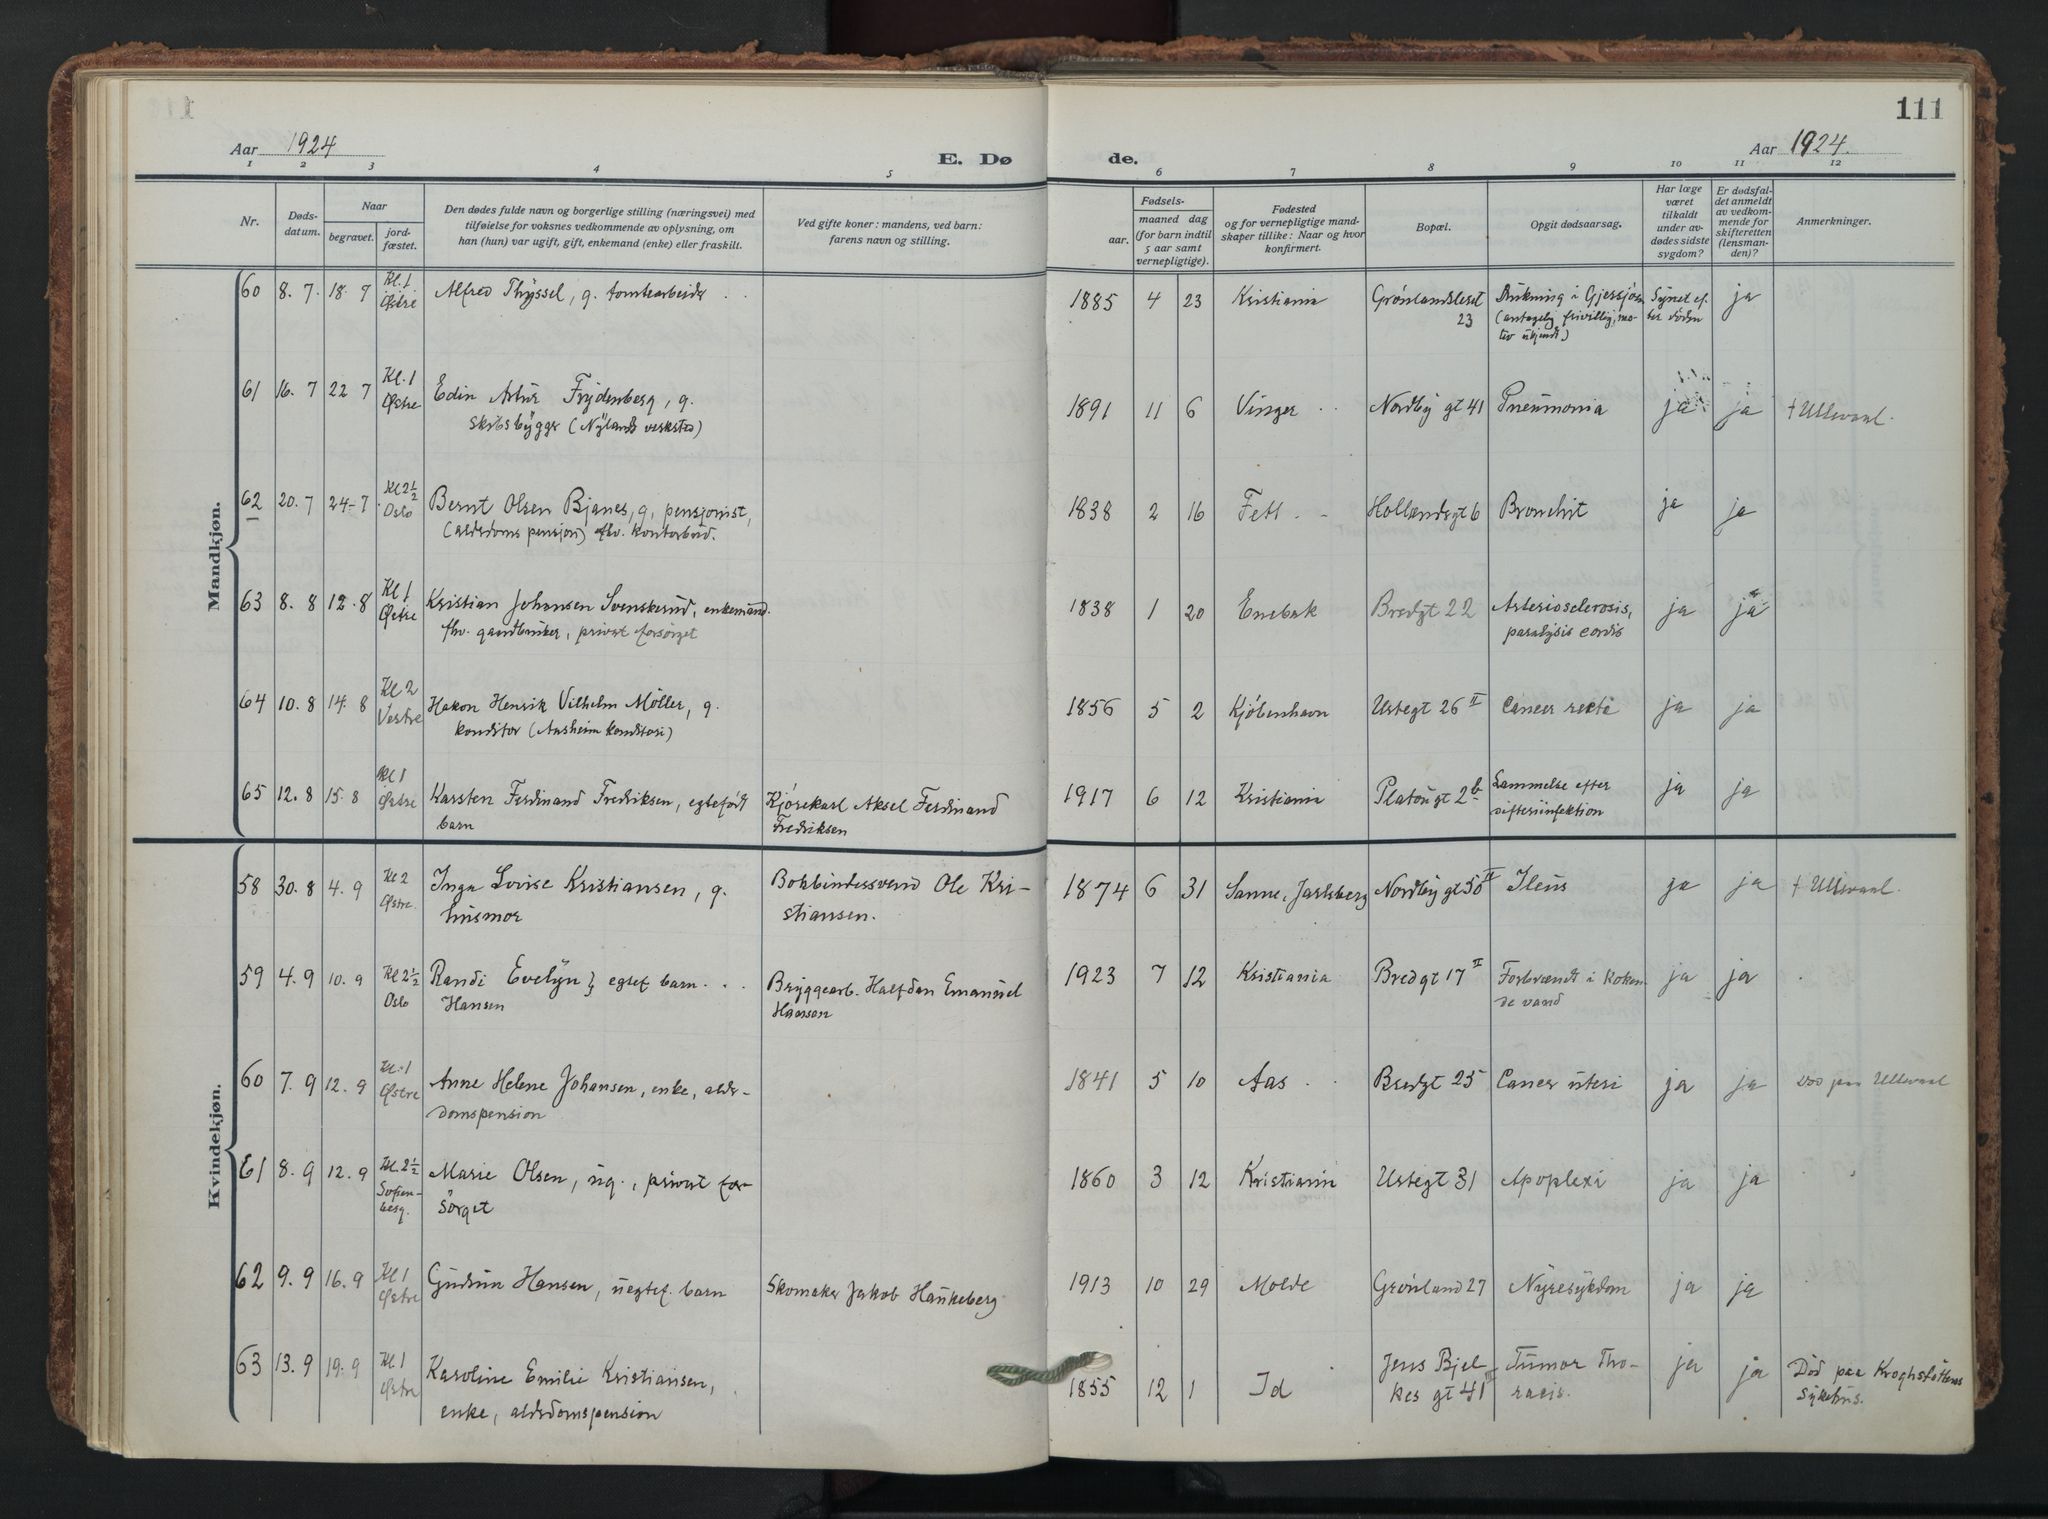 111
Aar 1924
E. Dø
de.
Aar 1924.
1 2 3 4 5 6 7 8 9 10 11 12
Nr.
Døds-
datum.
Naar
begravet.
jord-
fæstet.
Den dødes fulde navn og borgerlige stilling (næringsvei) med
tilføielse for voksnes vedkommende av oplysning, om
han (hun) var ugift, gift, enkemand (enke) eller fraskilt.
Ved gifte koner: mandens, ved barn:
farens navn og stilling.
Fødsels-
aar.
maaned dag
(for barn indtil
5 aar samt
vernepligtige).
Fødested
og for vernepligtige mand-
skaper tillike: Naar og hvor
konfirmert.
Bopæl.
Opgit dødsaarsag.
Har læge
været
tilkaldt
under av-
dødes sidste
sygdom?
Er dødsfal-
det anmeldt
av vedkom-
mende for
skifteretten
(lensman-
den)?
Anmerkninger.
Mandkjøn.
60 8. 7. 18. 9 Kl. 1 Østre Alfred Thyssel, g. tomtearbeider 1885 4 23 Kristiania Grønlandsleret Drukning i Gjersjøen Synet ef- ja
23 (antagelig frivillig, mo- ter døden
tiv ukjendt)
61 16. 7 22 7 Kl. 1 Østre Edin Artur Frydenberg, g. 1891 11 6 Vinger Nordby gt 41 Pneumonia ja ja † Ullevaal.
skibsbygger (Nylands verksted)
62 20. 7 24-7 Kl 2½ Oslo Bernt Olsen Bjanes, g. pensjonist, 1838 2 16 Fett Hollendergt 6 Bronchit ja ja
(alderdoms pensjon) fhv. kontorbud.
63 8. 8 12. 8 Kl 1 Østre Kristian Johansen Svenskerud, enkemand. 1838 1 20 Enebak Bredgt 22 Arteriosclerosis, ja ja
fhv. gaardbruker, privat forsørget paralysis cordis
64 10. 8 14. 8 Kl 2 Vestre Hakon Henrik Vilhelm Møller, g. 1856 5 2 Kjøbenhavn Urtegt 26 II Cancer recti ja ja
konditor (Aasheim konditori)
65 12. 8 15. 8 Kl 1 Østre Karsten Ferdinand Fredriksen, egtefødt Kjørekarl Aksel Ferdinand 1917 6 12 Kristiania Platougt 2b Lammelse efter ja ja
barn Fredriksen difteriinfektion
Kvindekjøn.
58 30. 8 4. 9 Kl 2 Østre. Inga Lovise Kristiansen, g. Bokbindersvend Ole Kri- 1874 6 31 Sanne, Jarlsberg Nordby gt 50 II Ileus ja ja † Ullevaal.
husmor stiansen.
59 4. 9 10. 9 Kl 2½ Oslo Randi Evelyn } egtef. barn Bryggearb. Halfdan Emanuel 1923 7 12 Kristiania Bredgt 17 II Forbrændt i koken- ja ja
Hansen Hansen de vand
60 7. 9 12. 9 Kl. 1 Østre Anne Helene Johansen, enke, alder- 1841 5 10 Aas Bredgt 25 Cancer uteri ja ja Død paa Ullevaal
domspension
61 8. 9 12. 9 Kl. 2½ Sofien- berg. Marie Olsen, ug., privat for- 1860 3 12 Kristiania Urtegt 31 Apoplexi ja ja
sørget
62 9. 9 16. 9 Kl 1 Østre Gudrun Hansen, uegtef. barn Skomaker Jakob Haukeberg 1913 10 29 Molde Grønland 27 Nyresykdom ja ja
63 13. 9 19. 9 Kl 1 Østre Karoline Emilie Kristiansen, 1855 12 1 Id Jens Bjel- Tumor Tho- ja ja Død paa Kroghstøttens
enke, alderdomspension kes gt 41 III racis. Sykehus.